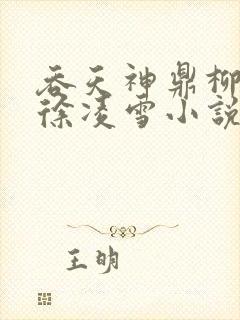 吞天神鼎柳
徐凌雪小說
王明